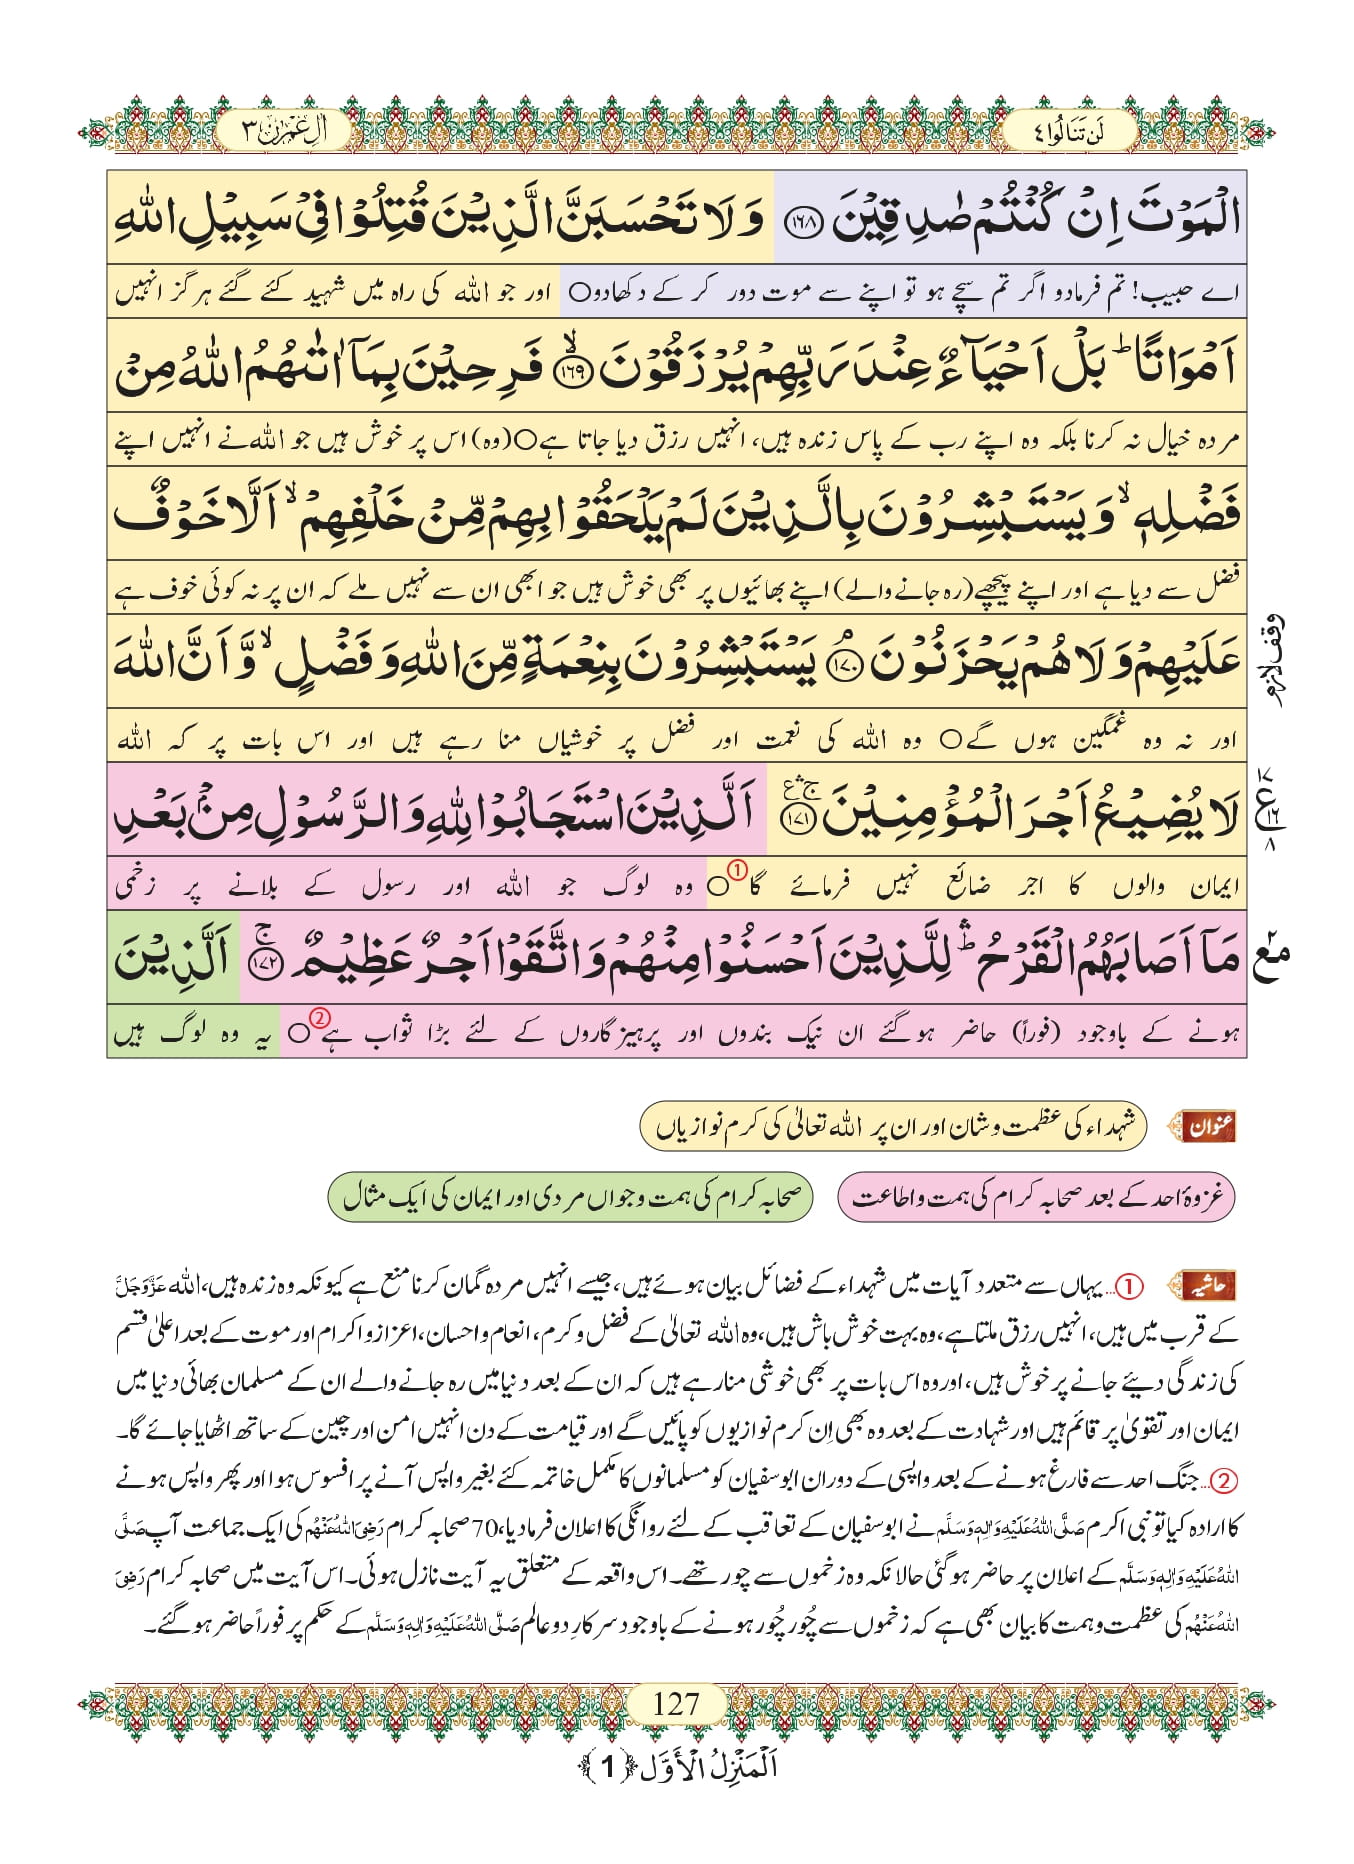 لَنْ تَنَالُوا ٤
اٰلِ عِمْرٰن ٣
الْمَوْتَ اِنْ كُنْتُمْ صٰدِقِيْنَ ﴿۱۶۸﴾ وَلَا تَحْسَبَنَّ الَّذِيْنَ قُتِلُوْا فِيْ سَبِيْلِ اللّٰهِ
اے حبیب! تم فرمادو اگر تم سچے ہو تو اپنے سے موت دور کر کے دکھادو○ اور جو اللہ کی راہ میں شہید کئے گئے ہرگز انہیں
اَمْوَاتًا ؕ بَلْ اَحْيَآءٌ عِنْدَ رَبِّهِمْ يُرْزَقُوْنَ ﴿۱۶۹﴾ۙ فَرِحِيْنَ بِمَآ اٰتٰىهُمُ اللّٰهُ مِنْ
مردہ خیال نہ کرنا بلکہ وہ اپنے رب کے پاس زندہ ہیں، انہیں رزق دیا جاتا ہے○ (وہ) اس پر خوش ہیں جو اللہ نے انہیں اپنے
فَضْلِهٖ ۙ وَيَسْتَبْشِرُوْنَ بِالَّذِيْنَ لَمْ يَلْحَقُوْا بِهِمْ مِّنْ خَلْفِهِمْ ۙ اَلَّا خَوْفٌ
فضل سے دیا ہے اور اپنے پیچھے (رہ جانے والے) اپنے بھائیوں پر بھی خوش ہیں جو ابھی ان سے نہیں ملے کہ ان پر نہ کوئی خوف ہے
عَلَيْهِمْ وَلَا هُمْ يَحْزَنُوْنَ ﴿۱۷۰﴾ۘ يَسْتَبْشِرُوْنَ بِنِعْمَةٍ مِّنَ اللّٰهِ وَفَضْلٍ ۙ وَّاَنَّ اللّٰهَ
وقف لازم
اور نہ وہ غمگین ہوں گے○ وہ اللہ کی نعمت اور فضل پر خوشیاں منا رہے ہیں اور اس بات پر کہ اللہ
لَا يُضِيْعُ اَجْرَ الْمُؤْمِنِيْنَ ﴿۱۷۱﴾ۚۛ اَلَّذِيْنَ اسْتَجَابُوْا لِلّٰهِ وَالرَّسُوْلِ مِنْۢ بَعْدِ
ع ۱۷ ۱۶ ۸
ایمان والوں کا اجر ضائع نہیں فرمائے گا①○ وہ لوگ جو اللہ اور رسول کے بلانے پر زخمی
مَآ اَصَابَهُمُ الْقَرْحُ ؕۛ لِلَّذِيْنَ اَحْسَنُوْا مِنْهُمْ وَاتَّقَوْا اَجْرٌ عَظِيْمٌ ﴿۱۷۲﴾ۚ اَلَّذِيْنَ
مع ۲
ہونے کے باوجود (فوراً) حاضر ہوگئے ان نیک بندوں اور پرہیزگاروں کے لئے بڑا ثواب ہے②○ یہ وہ لوگ ہیں
عنوان شہداء کی عظمت و شان اور ان پر اللہ تعالیٰ کی کرم نوازیاں
غزوۂ احد کے بعد صحابہ کرام کی ہمت و اطاعت صحابہ کرام کی ہمت و جواں مردی اور ایمان کی ایک مثال
حاشیہ ①... یہاں سے متعدد آیات میں شہداء کے فضائل بیان ہوئے ہیں، جیسے انہیں مردہ گمان کرنا منع ہے کیونکہ وہ زندہ ہیں، اللہ عَزَّوَجَلَّ
کے قرب میں ہیں، انہیں رزق ملتا ہے، وہ بہت خوش باش ہیں، وہ اللہ تعالیٰ کے فضل و کرم، انعام و احسان، اعزاز و اکرام اور موت کے بعد اعلیٰ قسم
کی زندگی دیئے جانے پر خوش ہیں، اور وہ اس بات پر بھی خوشی منارہے ہیں کہ ان کے بعد دنیا میں رہ جانے والے ان کے مسلمان بھائی دنیا میں
ایمان اور تقویٰ پر قائم ہیں اور شہادت کے بعد وہ بھی اِن کرم نوازیوں کو پائیں گے اور قیامت کے دن انہیں امن اور چین کے ساتھ اٹھایا جائے گا۔
②... جنگ احد سے فارغ ہونے کے بعد واپسی کے دوران ابوسفیان کو مسلمانوں کا مکمل خاتمہ کئے بغیر واپس آنے پر افسوس ہوا اور پھر واپس ہونے
کا ارادہ کیا تو نبی اکرم صَلَّى اللّٰهُ عَلَيْهِ وَاٰلِهٖ وَسَلَّمَ نے ابوسفیان کے تعاقب کے لئے روانگی کا اعلان فرمادیا، 70 صحابہ کرام رَضِيَ اللّٰهُ عَنْهُمْ کی ایک جماعت آپ صَلَّى
اللّٰهُ عَلَيْهِ وَاٰلِهٖ وَسَلَّمَ کے اعلان پر حاضر ہوگئی حالانکہ وہ زخموں سے چور تھے۔ اس واقعہ کے متعلق یہ آیت نازل ہوئی۔ اس آیت میں صحابہ کرام رَضِيَ
اللّٰهُ عَنْهُمْ کی عظمت و ہمت کا بیان بھی ہے کہ زخموں سے چُور چُور ہونے کے باوجود سرکارِ دو عالم صَلَّى اللّٰهُ عَلَيْهِ وَاٰلِهٖ وَسَلَّمَ کے حکم پر فوراً حاضر ہوگئے۔
127
اَلْمَنْزِلُ الْأَوَّل ﴿1﴾